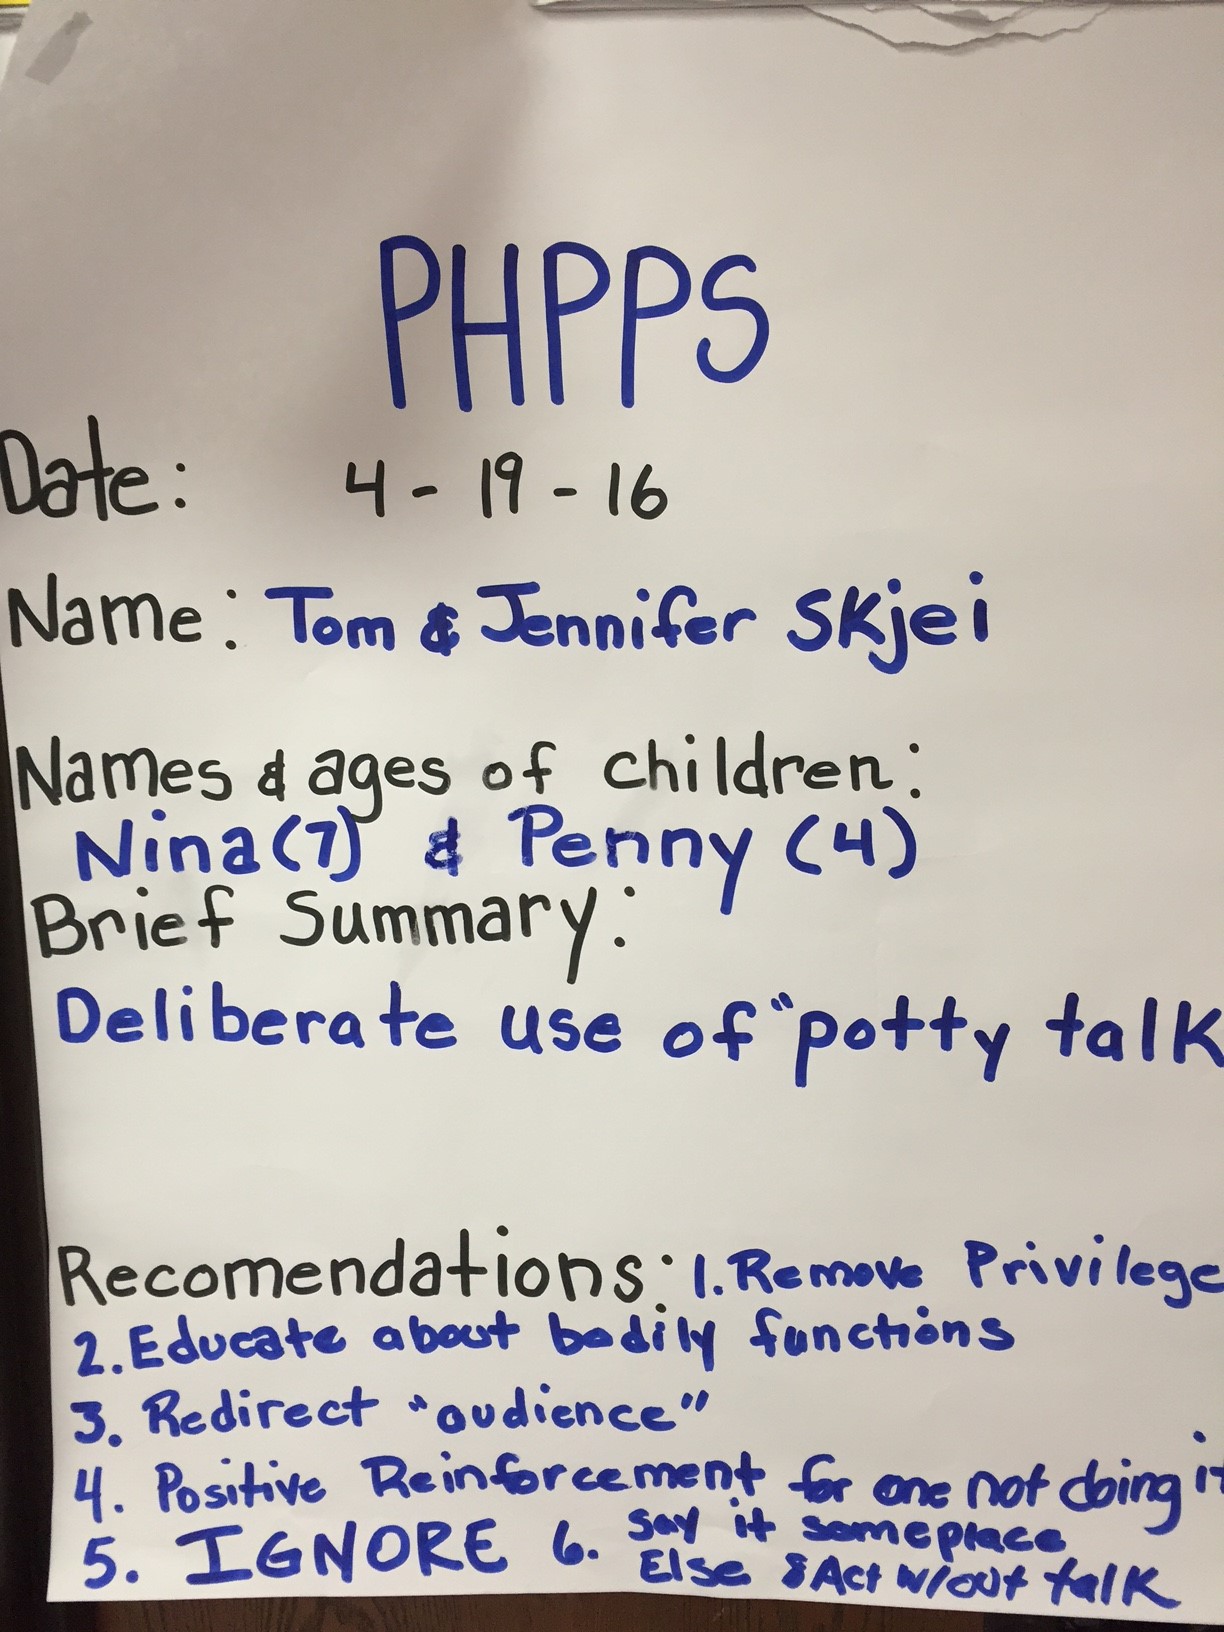 PHPPS
Date: 4-19-16
Name: Tom & Jennifer Skjei
Names & ages of children:
Nina (7) & Penny (4)
Brief Summary:
Deliberate use of "potty talk
Recomendations: 1. Remove Privilege
2. Educate about bodily functions
3. Redirect "audience"
4. Positive Reinforcement for one not doing it
5. IGNORE 6. say it someplace
Else & Act w/out talk